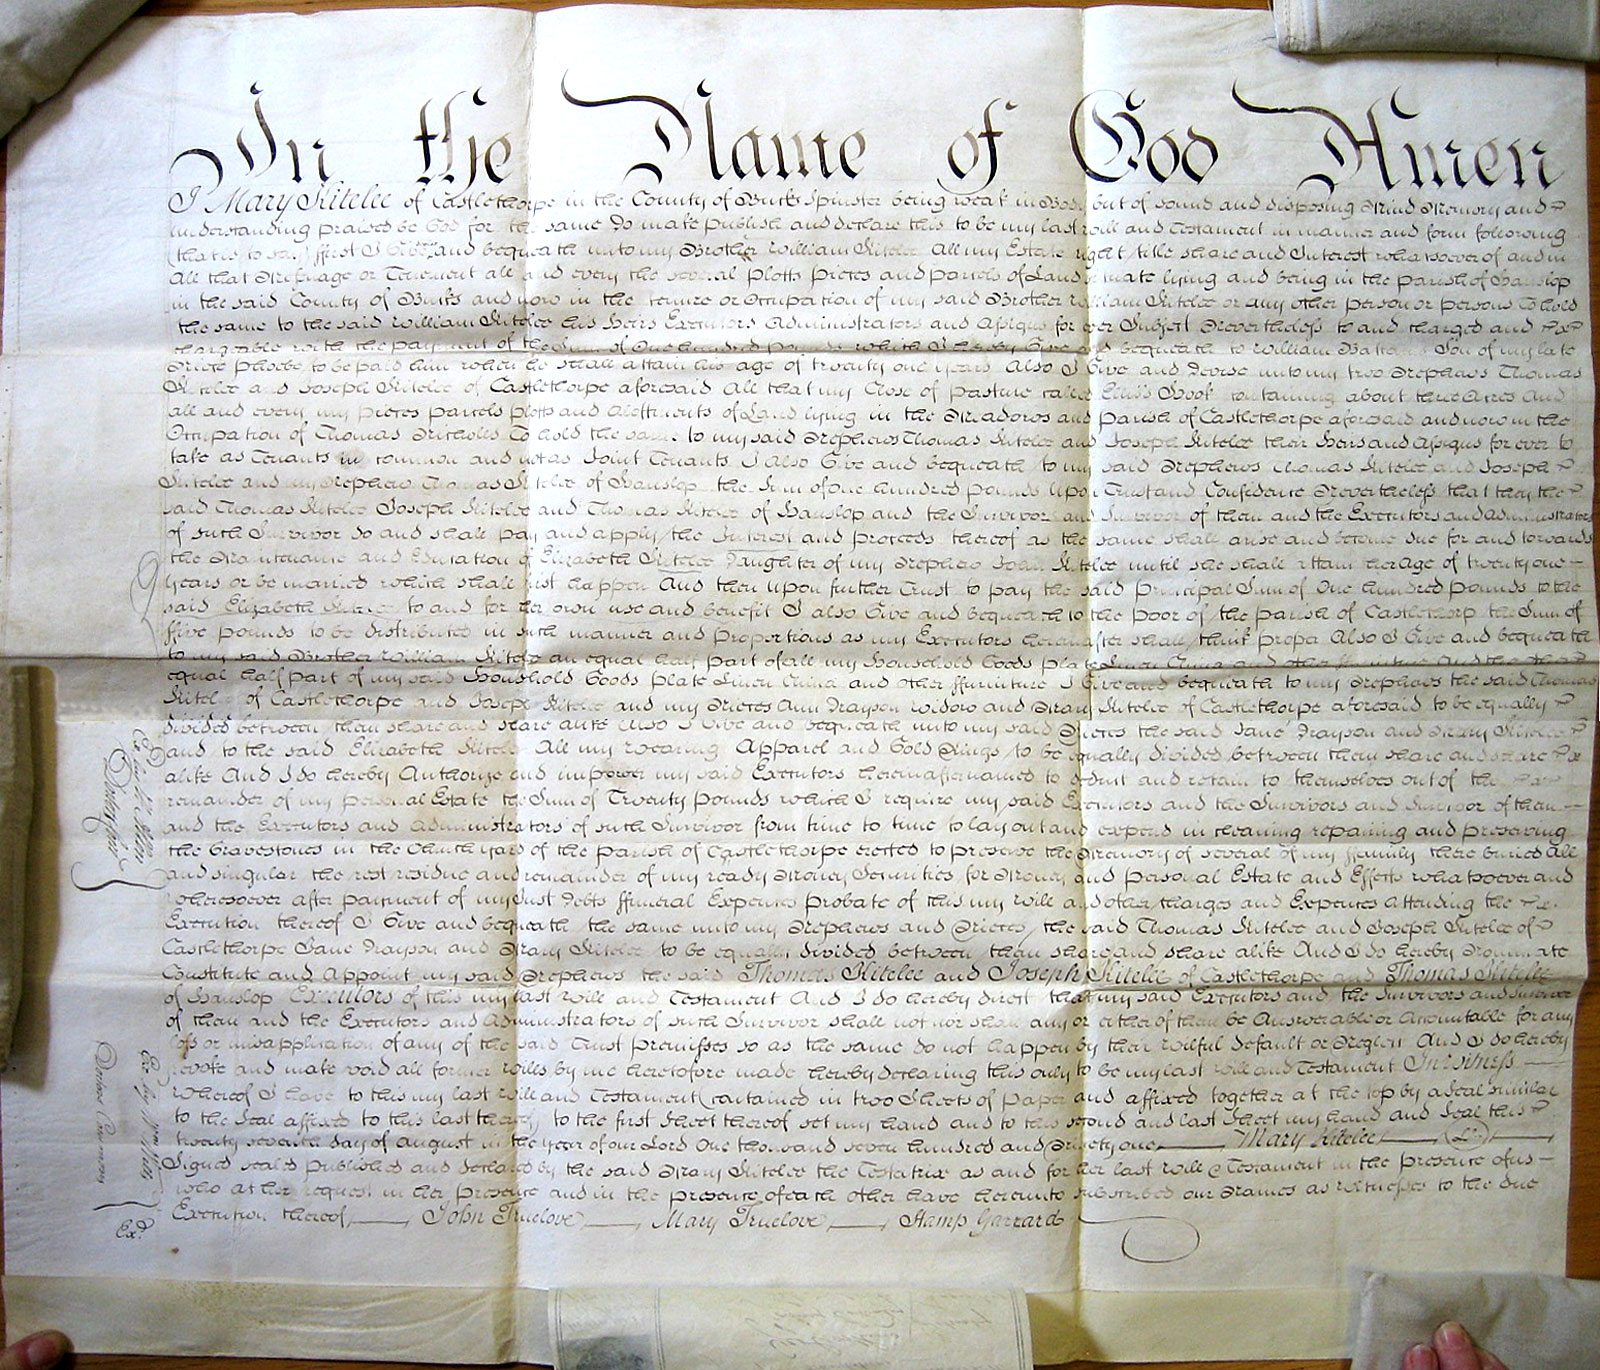 In the Name of God Amen
I Mary Kitelee of Castlethorpe in the County of Bucks Spinster being weak in Body but of sound and disposing Mind Memory and
understanding praised be God for the same do make publish and declare this to be my last will and Testament in manner and form following
(that is to say) ffirst I Give and bequeath unto my Brother William Kitelee All my Estate right title share and Interest whatsoever of and in
All that Messuage or Tenement all and every the several plotts pieces and parcels of Land situate lying and being in the parish of Hanslop
in the said County of Bucks and now in the tenure or Occupation of my said Brother William Kitelee or any other person or persons To hold
the same to the said William Kitelee his heirs Executors Administrators and Assigns for ever Subject Nevertheless to and charged and
chargeable with the payment of the Sum of One hundred pounds which I hereby Give and bequeath to William Son of my late
Niece Phoebe to be paid him when he shall attain his age of twenty one years Also I Give and devise unto my two Nephews Thomas
Kitelee and Joseph Kitelee of Castlethorpe aforesaid All that my Close of pasture called Hook containing about three Acres And
all and every my pieces parcels plotts and Allotments of Land lying in the Meadows and parish of Castlethorpe aforesaid and now in the
Occupation of Thomas Nicholls To hold the same to my said Nephews Thomas Kitelee and Joseph Kitelee their Heirs and Assigns for ever to
take as Tenants in common and not as Joint Tenants I also Give and bequeath to my said Nephews Thomas Kitelee and Joseph
Kitelee and my Nephew Thomas Kitelee of Hanslop the Sum of One hundred pounds Upon Trust and Confidence Nevertheless that they the
said Thomas Kitelee Joseph Kitelee and Thomas Kitelee of Hanslop and the Survivors and Survivor of them and the Executors and Administrators
of such Survivor do and shall pay and apply the Interest and proceeds thereof as the same shall arise and become due for and towards
the Maintenance and Education of Elizabeth Kitelee Daughter of my Nephew John Kitelee until she shall attain her Age of twenty one
years or be married which shall first happen And then upon further Trust to pay the said principal Sum of One hundred pounds to the
said Elizabeth Kitelee to and for her own use and benefit I also Give and bequeath to the poor of the parish of Castlethorp the Sum of
ffive pounds to be distributed in such manner and proportions as my Executors hereinafter shall think propa Also I Give and bequeath
to my said Brother William Kitelee an equal half part of all my Household Goods plate Linen China and other ffurniture And the other
equal half part of my said Household Goods plate Linen China and other ffurniture I Give and bequeath to my Nephews the said Thomas
Kitelee of Castlethorpe and Joseph Kitelee and my Nieces Ann Frayson widow and Mary Kitelee of Castlethorpe aforesaid to be equally
divided between them share and share alike Also I Give and bequeath unto my said Nieces the said Jane Frayson and Mary Kitelee
and to the said Elizabeth Kitelee All my wearing Apparel and Gold Rings to be equally divided between them share and share
alike And I do hereby Authorize and impower my said Executors hereinafter named to deduct and retain to themselves out of the
remainder of my personal Estate the Sum of Twenty pounds which I require my said Executors and the Survivors and Survivor of them
and the Executors and Administrators of such Survivor from time to time to lay out and expend in cleaning repairing and preserving
the Gravestones in the Church yard of the parish of Castlethorpe erected to preserve the Memory of several of my ffamily there buried All
and singular the rest residue and remainder of my ready Money Securities for Money and personal Estate and Effects whatsoever and
wheresoever after payment of my Just debts ffuneral Expences probate of this my will and other charges and Expences attending the
Execution thereof I Give and bequeath the same unto my Nephews and Nieces the said Thomas Kitelee and Joseph Kitelee of
Castlethorpe Jane Frayson and Mary Kitelee to be equally divided between them share and share alike And I do hereby Nominate
Constitute and Appoint my said Nephews the said Thomas Kitelee and Joseph Kitelee of Castlethorpe and Thomas Kitelee
of Hanslop Executors of this my last will and Testament And I do hereby direct that my said Executors and the Survivors and Survivor
of them and the Executors and Administrators of such Survivor shall not nor shall any or either of them be Answerable or Accountable for any
loss or misapplication of any of the said Trust premisses so as the same do not happen by their wilful default or Neglect And I do hereby
revoke and make void all former wills by me heretofore made hereby declaring this only to be my last will and Testament In witness
whereof I have to this my last will and Testament contained in two Sheets of paper and affixed together at the top by a Seal similar
to the Seal affixed to this last thereof to the first sheet thereof set my hand and to this second and last sheet my hand and Seal this
twenty seventh day of august in the year of our Lord One thousand seven hundred and Ninety one Mary Kitelee (LS)
Signed sealed published and declared by the said Mary Kitelee the Testatrix as and for her last will & Testament in the presence of us
who at her request in her presence and in the presence of each other have hereunto subscribed our Names as witnesses to the due
Execution thereof John Truelove Mary Truelove Stamp Garrard
Exd.